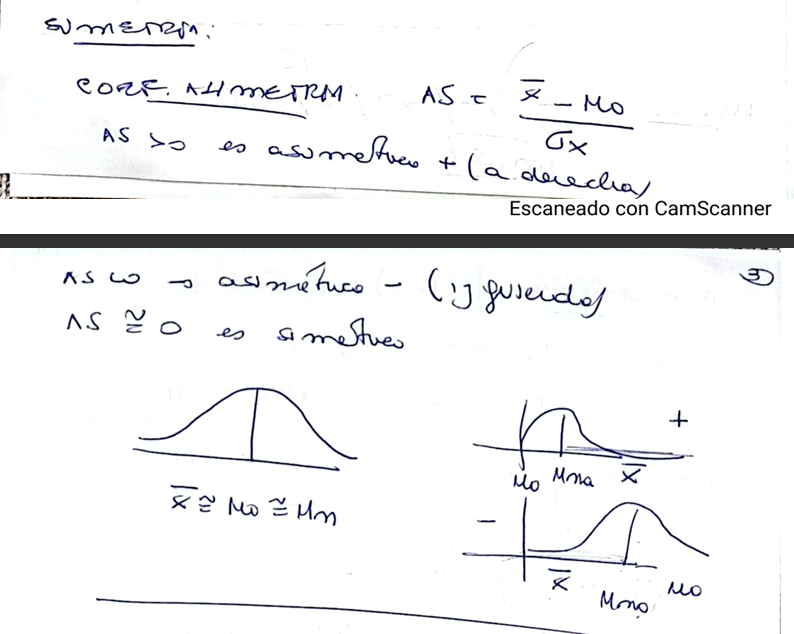 SIMETRIA:
COEF. ASIMETRIA. AS = x̄ - Mo / σx
AS > 0 es asimetrico + (a derecha)
Escaneado con CamScanner
3
AS < 0 → asimétrico - (izquierda)
AS ≅ 0 es simetrico
x̄ ≅ Mo ≅ Mn
+
Mo Mna x̄
-
x̄ Mna Mo